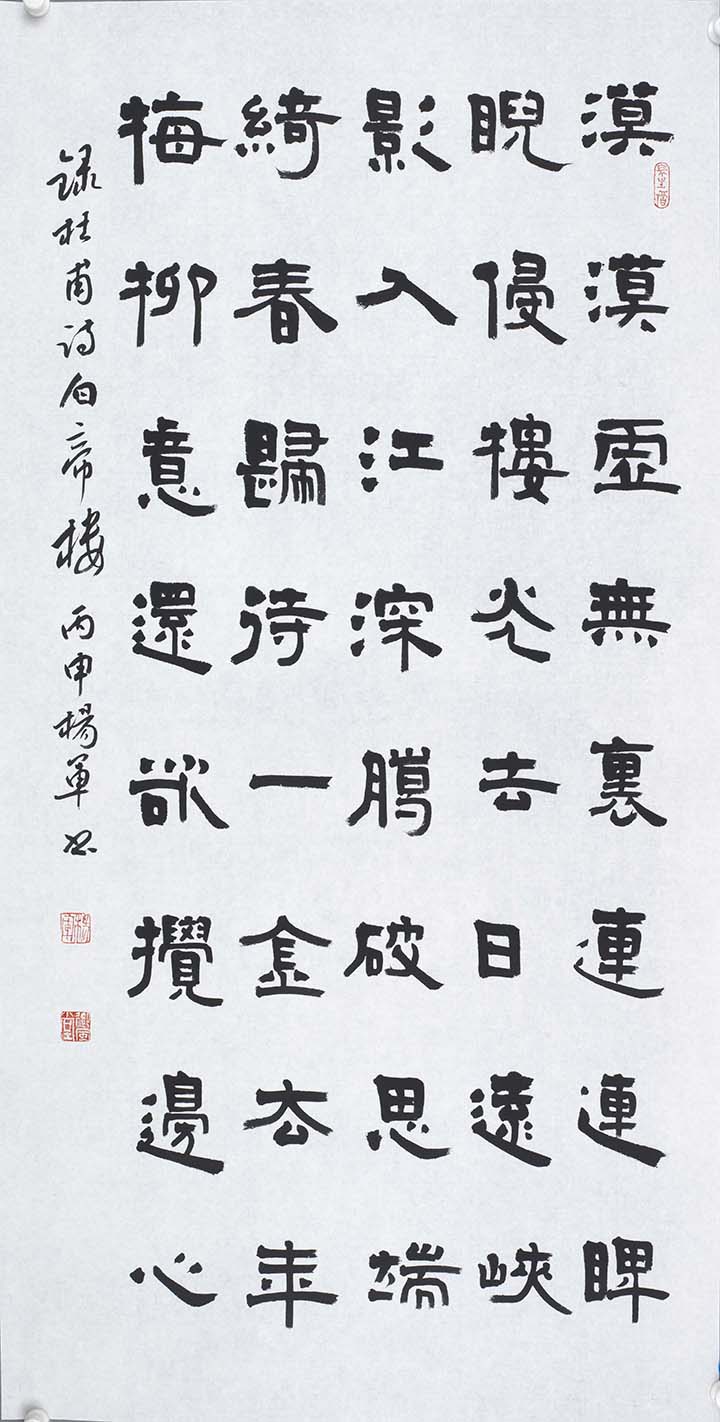 漠漠虛無裏連連睥
睨侵樓光去日遠峽
影入江深臈破思端
綺春歸待一金去年
梅柳意還欲攪邊心
録杜甫诗白帝楼 丙申楊軍书